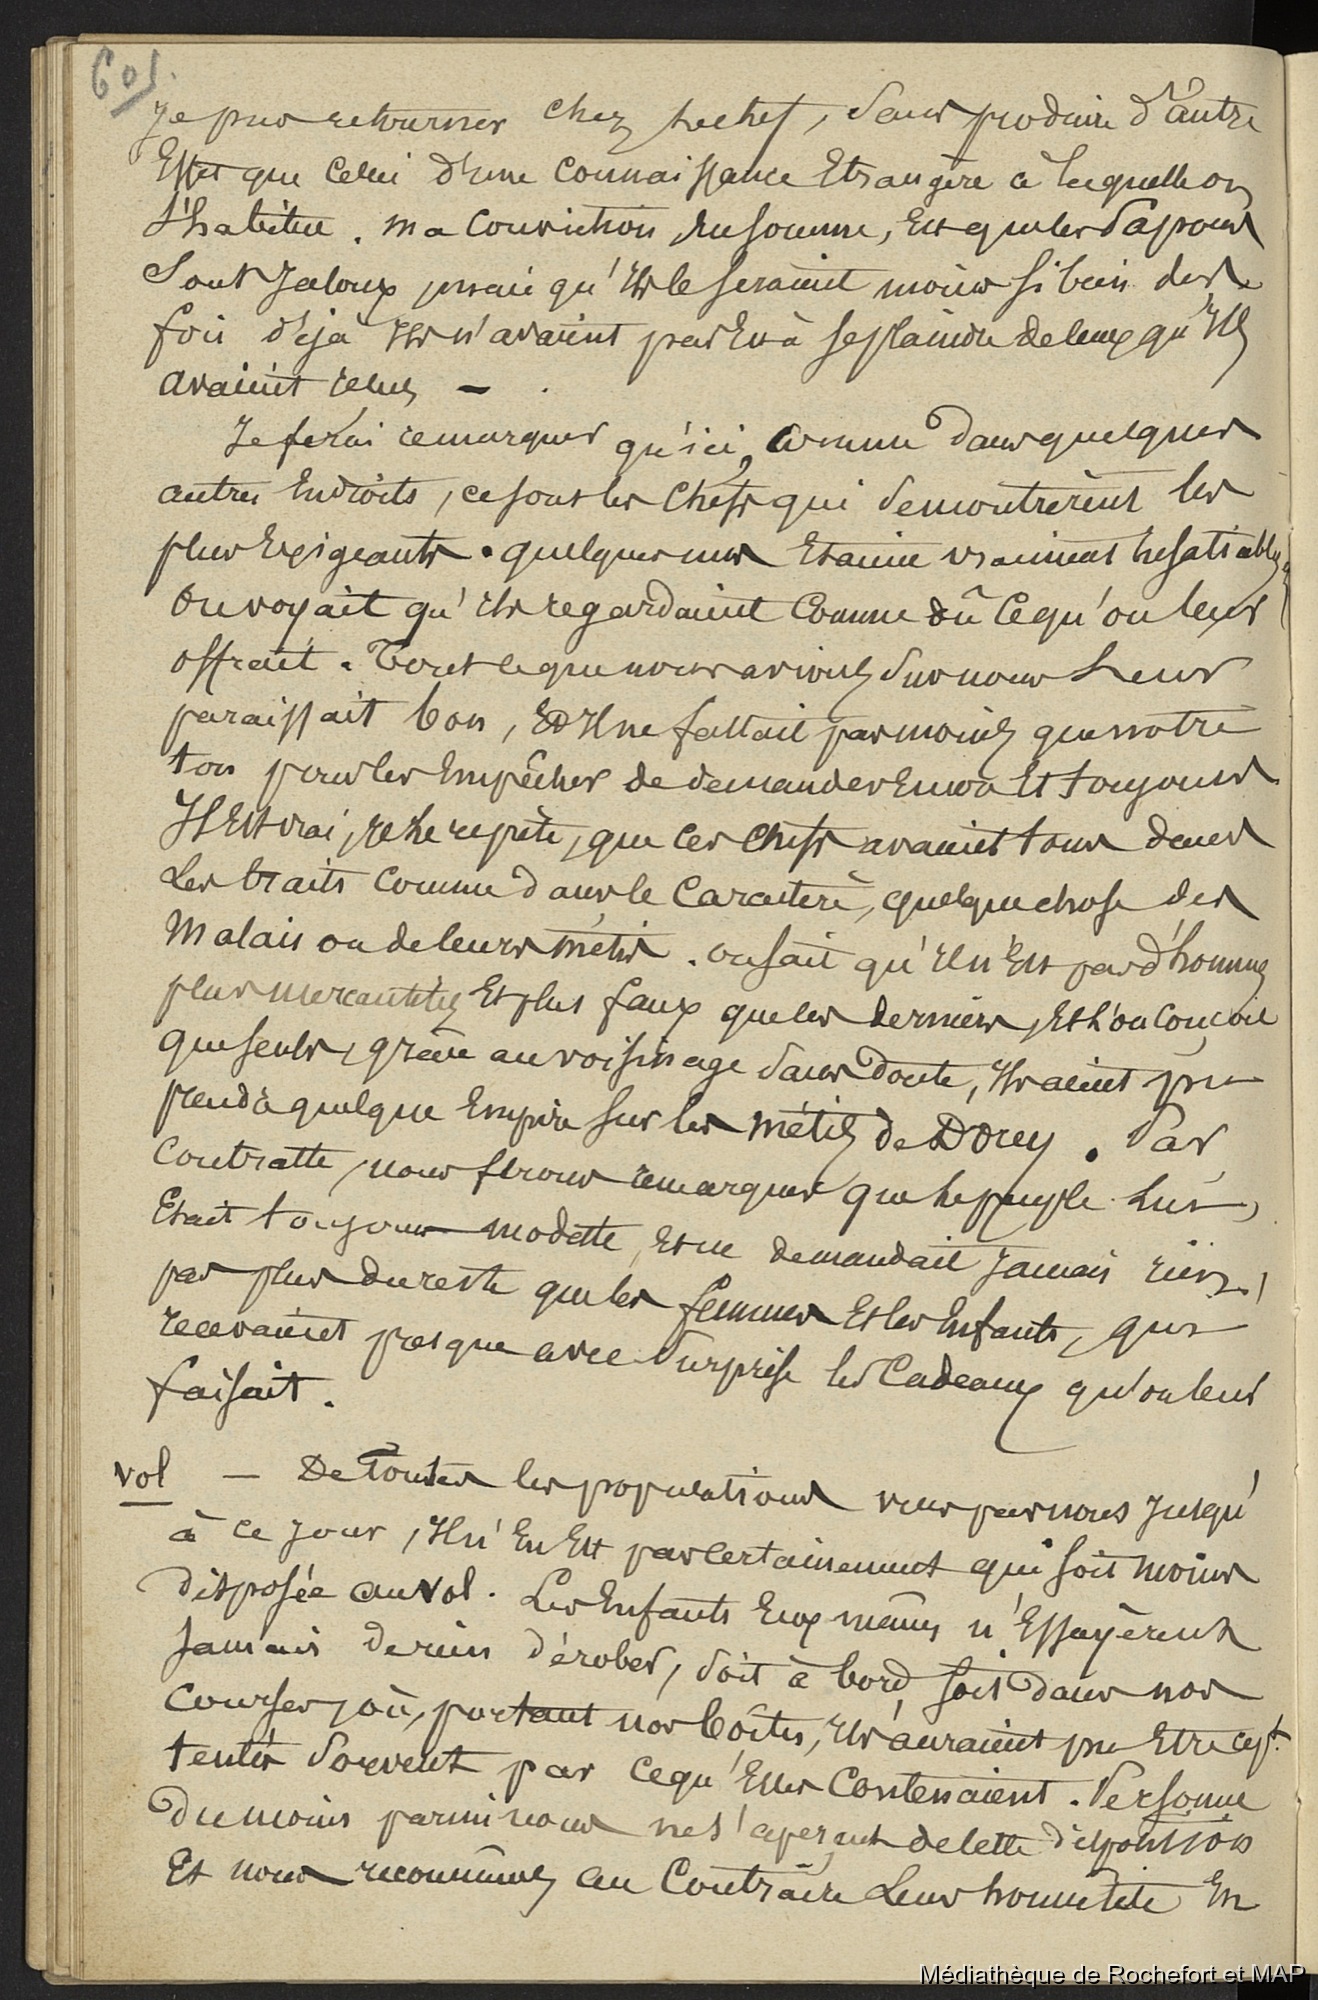 601.
Je pus retourner chez le chef, sans produire d'autre
Effet que celui d'une connaissance Etrangère à laquelle on
s'habitue. ma conviction, en somme, est que les Papous
sont jaloux, mais qu'ils le seraient moins si bien des
fois déjà ils n'avaient pas Eu à se plaindre de ceux qu'ils
avaient reçus —.
Je ferai remarquer qu'ici, comme dans quelques
autres Endroits, ce sont les chefs qui se montrèrent les
plus Exigeants. quelques uns Etaient vraiment insatiables
On voyait qu'ils regardaient comme dû ce qu'on leur
offrait. Tout ce que nous avions sur nous Leur
paraissait bon, Et il ne fallait pas moins que notre
ton pour les Empêcher de demander Encore Et toujours
Il Est vrai, je le repète, que ces chefs avaient tous dans
Les traits comme dans le caractère, quelque chose des
Malais ou de leurs métis. on sait qu'il n'Est pas d'hommes
plus mercantiles Et plus faux que ces derniers, Et l'on conçoit
que seuls, grâce au voisinage sans doute, ils aient pu
prendre quelque Empire sur les métis de Dorey. Par
contratte, nous ferons remarquer que le peuple Lui,
Etait toujours modette, Et ne demandait jamais rien,
pas plus du reste que les femmes Et les Enfants, qui
recevaient presque avec surprise les Cadeaux qu'on leur
faisait.
vol — De toutes les populations vues par nous jusqu'
à ce jour, il n'En Est pas certainement qui soit moins
disposée au vol. Les Enfants Eux mêmes n'Essayèrent
jamais de rien dérober, soit à bord soit dans nos
courses, où, portant nos boîtes, ils auraient pu Etre cept.
tentés souvent par ce qu'Elles contenaient. Personne
du moins parmi nous ne s'aperçut de cette disposition
Et nous reconnûmes au Contraire Leur honnêteté En
Médiathèque de Rochefort et MAP